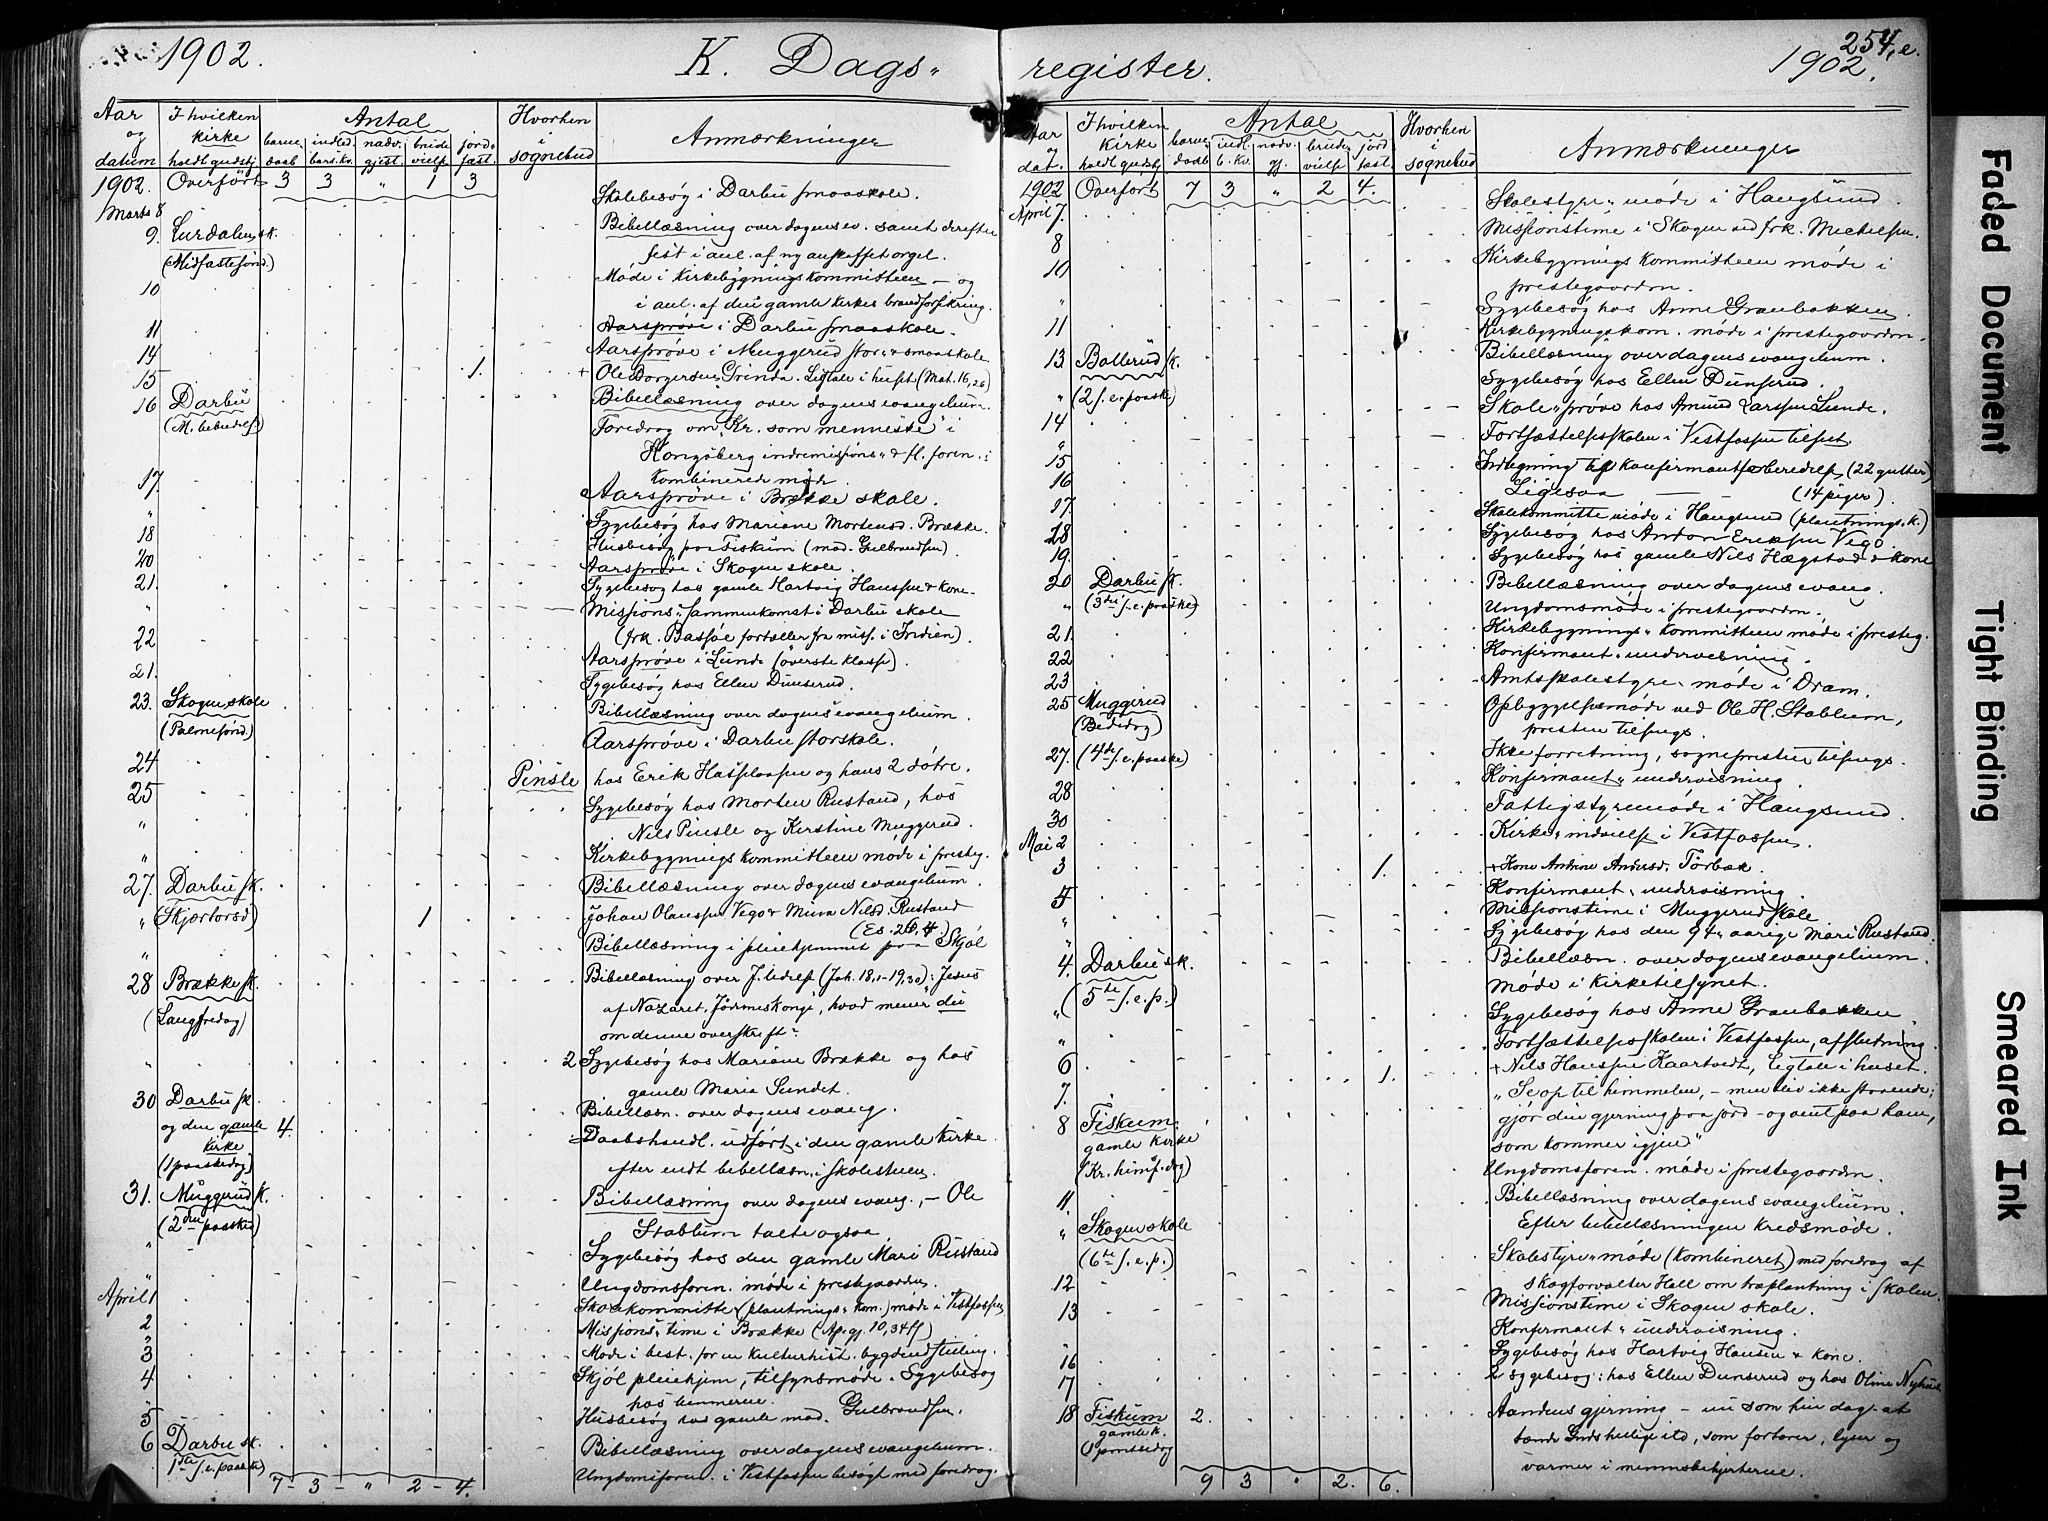 1902. K. Dags-
Aar og datum | I hvilken kirke holdt gudstj. | Antal | Hvorhen i sognebud | Anmærkninger
barne daab | indled. bars. kv. | nadv. gjest. | brude vielse | jord-fæst.
1902. Overført 3 3 " 1 3
Marts 8 Skolebesøg i Darbu smaaskole.
9. Lurdalen sk. Bibellæsning over dagens ev. samt derefter
(Midfastesønd.) fest i anl. af ny anskaffet orgel.
10 Møde i Kirkebygningskommitteen – og
i anl. af den gamle kirkes brandforsikring.
11 Aarsprøve i Darbu smaaskole.
14 Aarsprøve i Muggerud stor- & smaaskole
15 1. + Ole Borgersen Grinda. Ligtale i huset (Mat. 16, 26)
16 Darbu Bibellæsning over dagens evangelium.
(M. bebudelse) Foredrag om "Kr. som menneske" i
Kongsberg indremisjons- & fl. foren. i
kombinerede møde.
17. Aarsprøve i Brække skole.
" Sygebesøg hos Mariane Mortensd. Brække.
18 Husbesøg paa Fiskum (mad. Gulbrandsen).
20 Aarsprøve i Skogen skole.
21. Sygebesøg hos gamle Hartvig Hansen & kone.
" Missions-sammenkomst i Darbu skole
22 (frk. Bassøe fortæller fra miss. i Indien).
21. Aarsprøve i Lunde (øverste klasse).
Sygebesøg hos Ellen Dunserud.
23. Skogen skole Bibellæsning over dagens evangelium.
(Palmesønd.) Aarsprøve i Darbu storskole.
24 Pinsle hos Erik Hasselaasen og hans 2 døtre.
25 Sygebesøg hos Morten Rustand, hos
" Nils Pinsle og Kerstine Muggerud.
" Kirkebygningskommitteen møde i presteg.
27. Darbu sk. Bibellæsning over dagens evangelium.
" (Skjærtorsd) 1 Johan Olaussen Vego & Mina Nilsd. Rustand
(Es. 26, 4.)
" Bibellæsning i pleiehjemmet paa Skjøl
28 Brække sk. Bibellæsning over J. lidelse (Joh. 18,1–19,30): Jesus
(Langfredag) af Nazaret, Jødernes konge, hvad mener du
om denne overskrift?
" 2 Sygebesøg hos Mariane Brække og hos
gamle Maria Sundet.
30 Darbu sk. Bibellæsn. over dagens evang.
og den gamle kirke 4. Daabshandl. udført i den gamle kirke
(1 paaskedag) efter endt bibellæsn. i skolestuen.
31. Muggerud sk. Bibellæsning over dagens evang., – Ole
(2den paasked) Stablum talte ogsaa.
" Sygebesøg hos den gamle Mari Rustand
" Ungdomsforen. møde i prestgaarden.
April 1 Skolekommitte (plantnings- kom.) møde i Vestfossen
2 Missions-time i Brække (Ap. gj. 10, 34 ff)
3 Møde i best. for en kulturhist. bygdeudstilling.
4 Skjøl pleiehjem, tilsynsmøde. Sygebesøg
hos lemmerne.
5 Husbesøg hos gamle mad. Gulbrandsen.
6 Darbu sk. Bibellæsning over dagens evangelium.
1ste s. e. paaske) Ungdomsforen. i Vestfossen besøgt med foredrag.
7 – 3 – " 2 – 4.
register. 254, e.
1902.
Aar og dat. | I hvilken kirke holdt gudstj. | Antal | Hvorhen i sognebud | Anmærkninger
barne daab | indl. b. kv. | nadv. gj. | brude-vielse | jord fæst.
1902 Overført 7 3 " 2 4.
April 7. Skolestyre-møde i Haugsund.
8 Missionstime i Skogen ved frk. Michelsen.
10 Kirkebygnings kommitteen møde i
prestegaarden.
" Sygebesøg hos Anne Grønbakken.
11 Kirkebygningskom. møde i prestegaarden.
13 Bollerud sk. Bibellæsning over dagens evangelium.
" (2 s. e. paaske) Sygebesøg hos Ellen Dunserud.
14 Skole-prøve hos Amund Larssen Lunde.
" Fortsættelsesskolen i Vestfossen tilset.
15 Indtegning til konfirmantforberedelse (22 gutter)
16 Ligesaa — (14 piger).
17. Skolekommitte møde i Haugsund (plantnings. k.)
18 Sygebesøg hos Anton Eriksen Vego.
19. Sygebesøg hos gamle Nils Hægstad & kone
20 Darbu sk. Bibellæsning over dagens evang.
" (3die s. e. paaske) Ungdomsmøde i prestegaarden.
21. Kirkebygnings-kommitteen møde i presteg.
22 Konfirmant-undervisning.
23 Amtsskolestyre-møde i Dram.
25 Muggerud Opbyggelsesmøde ved Ole H. Stablum,
(Bededag) presten tilsygs.
27. (4de s. e. paaske) Ikke forretning, sognepresten tilsygs.
28 Konfirmant-undervisning
30 Fattigstyremøde i Haugsund.
Mai 2 Kirke-indvielse i Vestfossen.
3 1. + Kone Andine Andersd. Torbak.
5 Konfirmant-undervisning.
" Missionstime i Muggerud skole
" Sygebesøg hos den 94-aarige Mari Rustand.
4. Darbu sk. Bibellæsn. over dagens evangelium.
(5te s. e. p.) Møde i kirketilsynet.
" Sygebesøg hos Anne Grønbakken
" Fortsættelsesskolen i Vestfossen, afslutning.
6 1. + Nils Hanssen Kaartvedt, Ligtale i huset.
7. "Se op til himmelen, – men bliv ikke staaende;
8 Fiskum gjør din gjerning paa jord – og vent paa ham,
gamle kirke som kommer igjen"
(Kr. himf. dag) Ungdomsforen. møde i prestegaarden
11 Bibellæsning over dagens evangelium.
" Skogen skole Efter bibellæsningen kredsmøde.
(6te s. e. p.) Skolestyre-møde (kombineret) med foredrag af
12 skogforvalter Hall om træplantning i skolen.
13 Missionstime i Skogen skole.
Konfirmant-undervisning.
16 Sygebesøg hos Hartvig Hansen & kone.
17 2 sygebesøg: hos Ellen Dunserud og hos Oline Nyhus
18 Fiskum 2. Aandens gjerning – nu som hin dag – at
gamle k. tænde Guds hellige ild, som fortærer, lyser og
(1 pinsedag varmer i menneskehjerterne.
9 3 " 2. 6.
Faded Document
Tight Binding
Smeared Ink